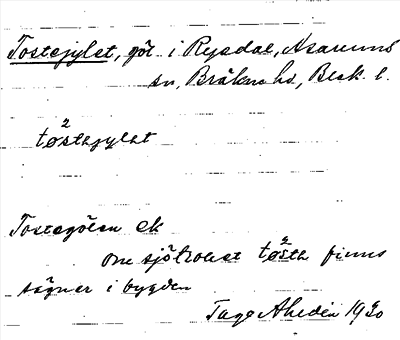 Tostejylet, göl i Rysdal, Asarums
sn, Bräkne hd, Blek. l.
tø²stejylət
Tostegölen ek
Om sjötrollet tø²stə finns
sägner i bygden
Tage Ahedén 1930